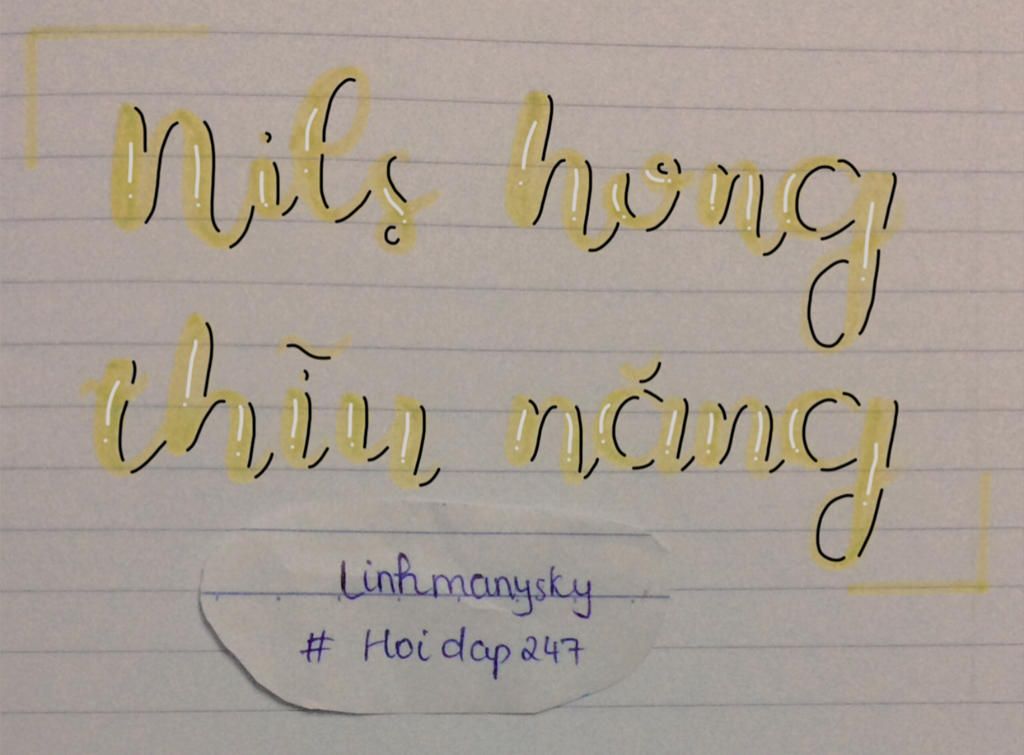 Nilʂ hơng
thĩu năng
Linhmanysky
# Hoidap247